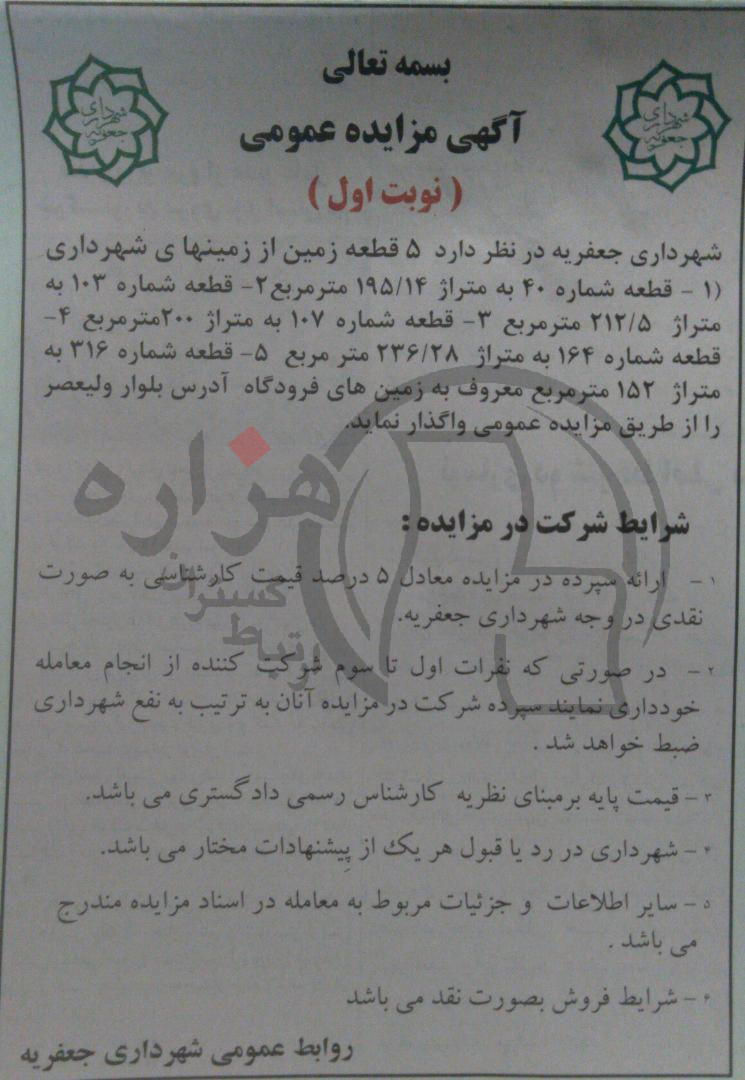 بسمه تعالی
آگهی مزایده عمومی
( نوبت اول )
شهرداری جعفریه
شهرداری جعفریه
شهرداری جعفریه در نظر دارد ۵ قطعه زمین از زمینها ی شهرداری
(۱ - قطعه شماره ۴۰ به متراژ ۱۹۵/۱۴ مترمربع۲- قطعه شماره ۱۰۳ به
متراژ ۲۱۲/۵ مترمربع ۳- قطعه شماره ۱۰۷ به متراژ ۲۰۰مترمربع ۴-
قطعه شماره ۱۶۴ به متراژ ۲۳۶/۲۸ متر مربع ۵- قطعه شماره ۳۱۶ به
متراژ ۱۵۲ مترمربع معروف به زمین های فرودگاه آدرس بلوار ولیعصر
را از طریق مزایده عمومی واگذار نماید.
هزاره
گستران
ارتباط
شرایط شرکت در مزایده :
۱- ارائه سپرده در مزایده معادل ۵ درصد قیمت کارشناسی به صورت
نقدی در وجه شهرداری جعفریه.
۲- در صورتی که نفرات اول تا سوم شرکت کننده از انجام معامله
خودداری نمایند سپرده شرکت در مزایده آنان به ترتیب به نفع شهرداری
ضبط خواهد شد .
۳- قیمت پایه برمبنای نظریه کارشناس رسمی دادگستری می باشد.
۴- شهرداری در رد یا قبول هر یک از پیشنهادات مختار می باشد.
۵- سایر اطلاعات و جزئیات مربوط به معامله در اسناد مزایده مندرج
می باشد .
۶- شرایط فروش بصورت نقد می باشد
روابط عمومی شهرداری جعفریه